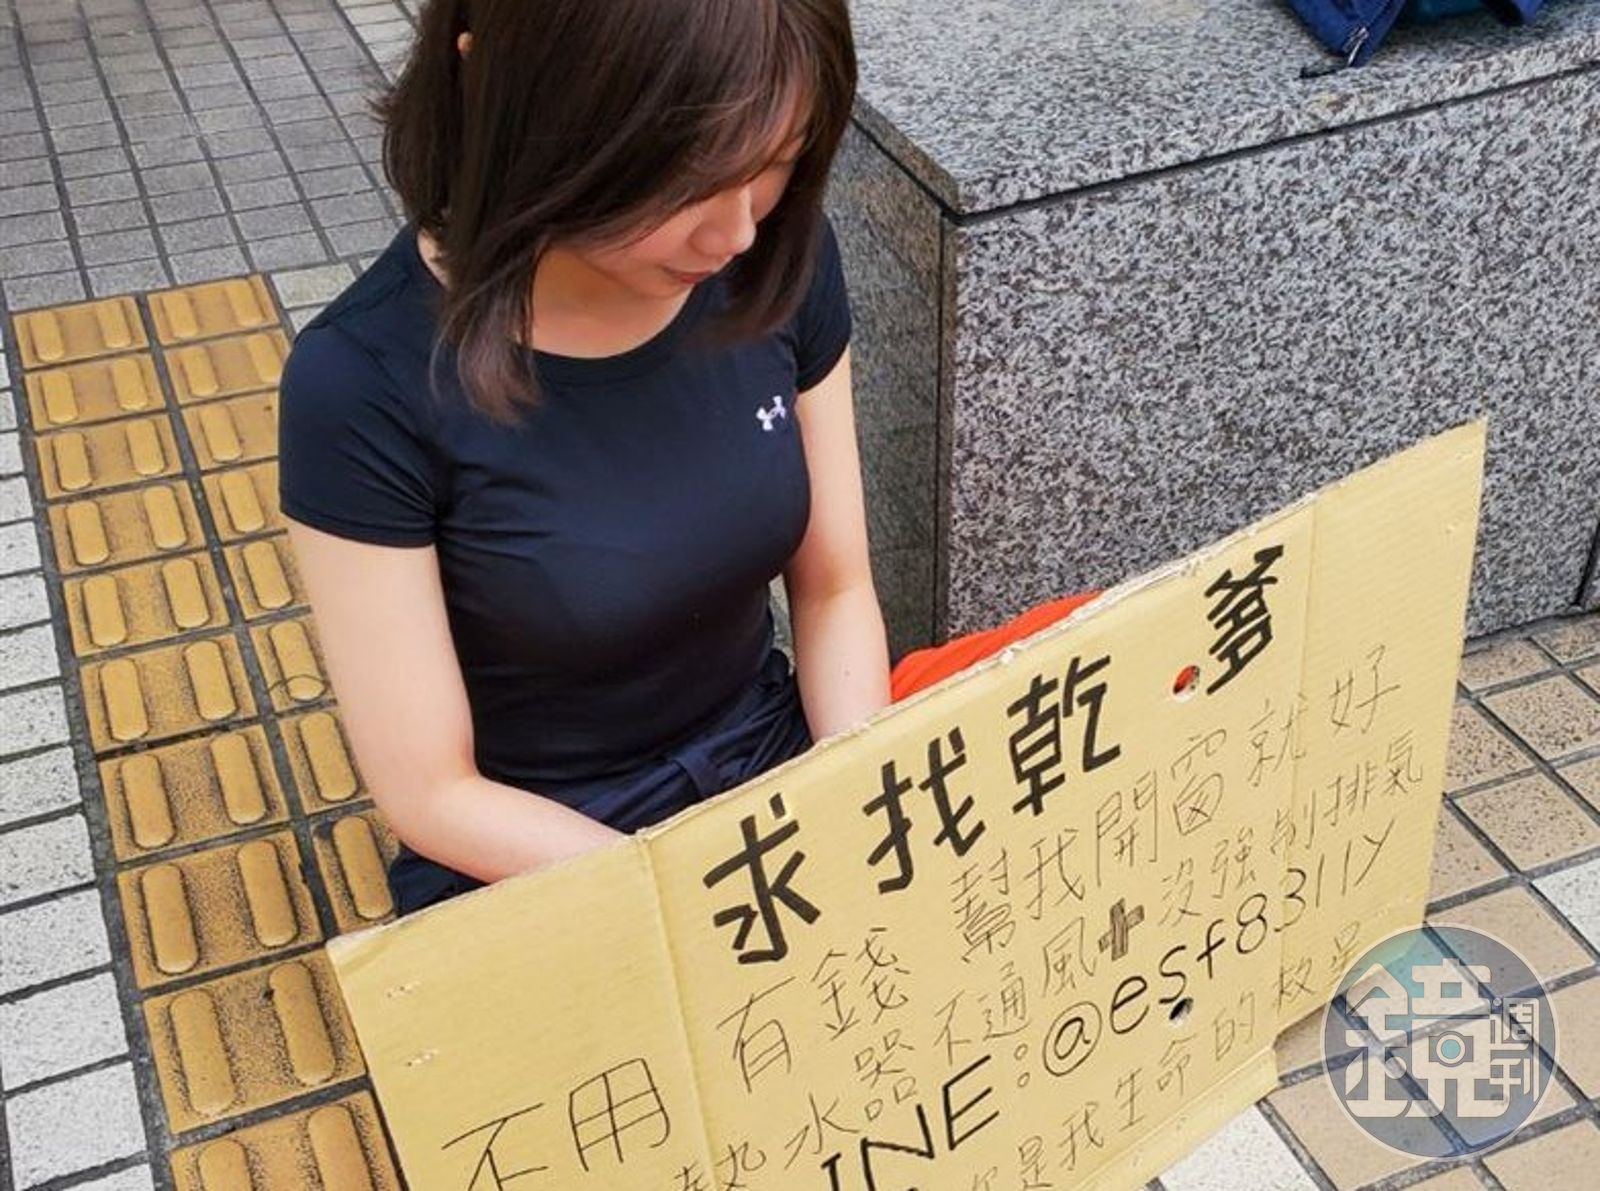 求找乾爹
不用有錢 幫我開窗就好
熱水器不通風+沒強制排氣
LINE:@esf8311y
你是我生命的救星
鏡週刊